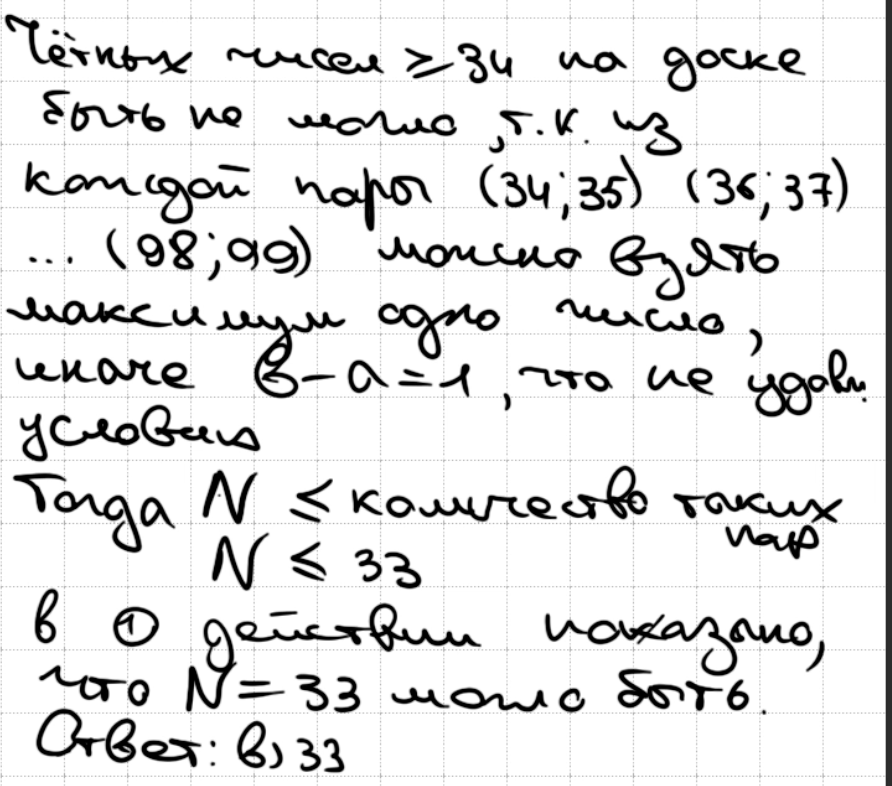 Чётных чисел ≥ 34 на доске
быть не могло, т.к. из
каждой пары (34;35) (36;37)
... (98;99) можно взять
максимум одно число,
иначе b-a=1, что не удовл.
условия
Тогда N ≤ количество таких
пар
N ≤ 33
в ① действии показано,
что N = 33 могло быть.
Ответ: в) 33